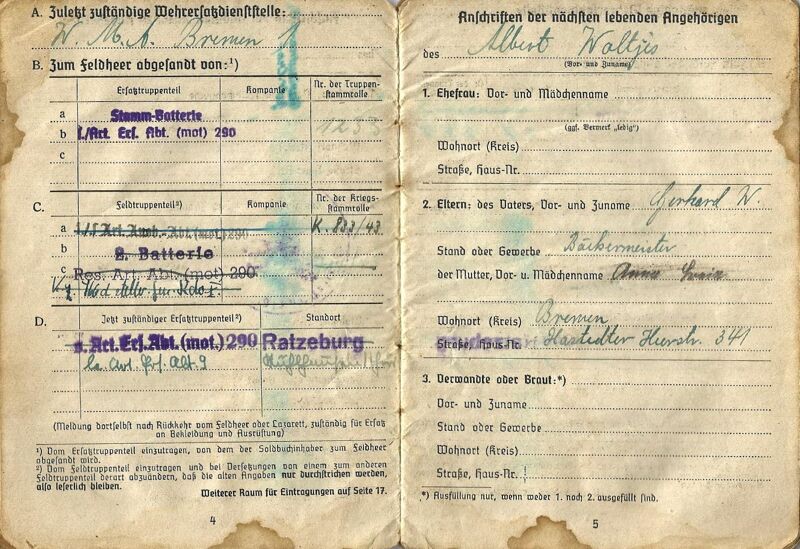 A. Zuletzt zuständige Wehrersatzdienststelle:
W. M. A. Bremen 1
B. Zum Feldheer abgesandt von:¹)
Ersatztruppenteil Kompanie Nr. der Truppenstammrolle
a Stamm-Batterie
b I./Art. Ers. Abt. (mot) 290 1233
c
C. Feldtruppenteil²) Kompanie Nr. der Kriegsstammrolle
a K. 833/43
b 2. Batterie
c Res. Art. Abt. (mot) 290
D. Jetzt zuständiger Ersatztruppenteil²) Standort
Art. Ers. Abt. (mot.) 290 Ratzeburg
(Meldung dortselbst nach Rückkehr vom Feldheer oder Lazarett, zuständig für Ersatz
an Bekleidung und Ausrüstung)
¹) Vom Ersatztruppenteil einzutragen, von dem der Soldbuchinhaber zum Feldheer
abgesandt wird.
²) Vom Feldtruppenteil einzutragen und bei Versetzungen von einem zum anderen
Feldtruppenteil derart abzuändern, daß die alten Angaben nur durchstrichen werden,
also leserlich bleiben.
Weiterer Raum für Eintragungen auf Seite 17.
4
Anschriften der nächsten lebenden Angehörigen
des Albert Woltjes
(Vor- und Zuname)
1. Ehefrau: Vor- und Mädchenname
(ggf. Vermerk „ledig")
Wohnort (Kreis)
Straße, Haus-Nr.
2. Eltern: des Vaters, Vor- und Zuname Gerhard W.
Stand oder Gewerbe Bäckermeister
der Mutter, Vor- u. Mädchenname Anna
Wohnort (Kreis) Bremen
Straße, Haus-Nr. Hastedter Heerstr. 341
3. Verwandte oder Braut:*)
Vor- und Zuname
Stand oder Gewerbe
Wohnort (Kreis)
Straße, Haus-Nr.
*) Ausfüllung nur, wenn weder 1. noch 2. ausgefüllt sind.
5